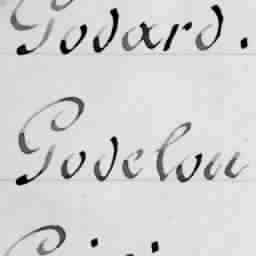 Godard.
Godelou